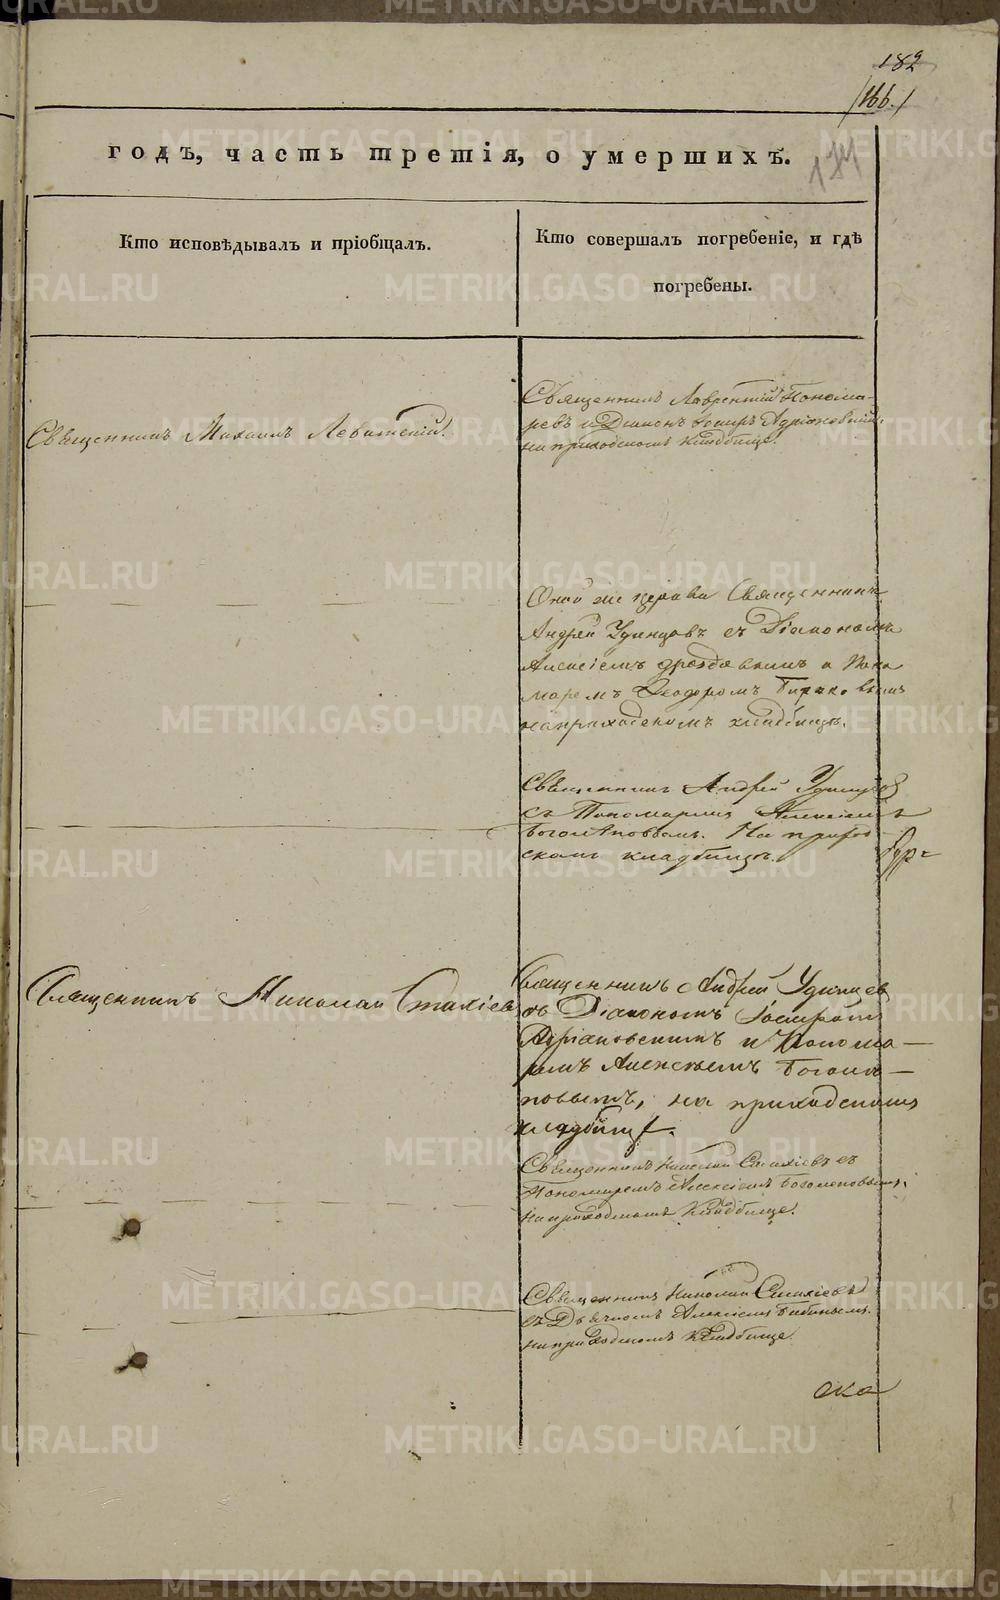 182
166.
184
годъ, часть третія, о умершихъ.
Кто исповѣдывалъ и пріобщалъ.
Кто совершалъ погребеніе, и гдѣ
погребены.
Священникъ Михаилъ Левитскій.
Священникъ Лаврентій Понома-
ревъ и Діаконъ Адріановскій,
на приходскомъ кладбище.
Оной же церкви Священникъ
Андрей Удинцовъ съ Діакономъ
Алексіемъ Дроздовымъ и Поно
маремъ Ѳеодоромъ Бирюковымъ
на приходскомъ кладбищѣ.
Священникъ Андрей Удинцов
съ Пономаремъ Алексіемъ
Боголѣповымъ. На приход
скомъ кладбищѣ.
Священникъ Николай Стахіев
Священникъ Андрей Удинцев
съ Діакономъ
Адріановскимъ и Понома-
ремъ Алексѣемъ Боголе-
повымъ, на приходскомъ
кладбище.
Священникъ Николай Стахіевъ съ
Пономаремъ Алексіемъ Боголеповымъ,
на приходскомъ кладбище.
Священникъ Николай Стахіевъ
съ Дьячкомъ Алексіемъ Бабинымъ.
на приходскомъ кладбище.
ока
METRIKI.GASO-URAL.RU